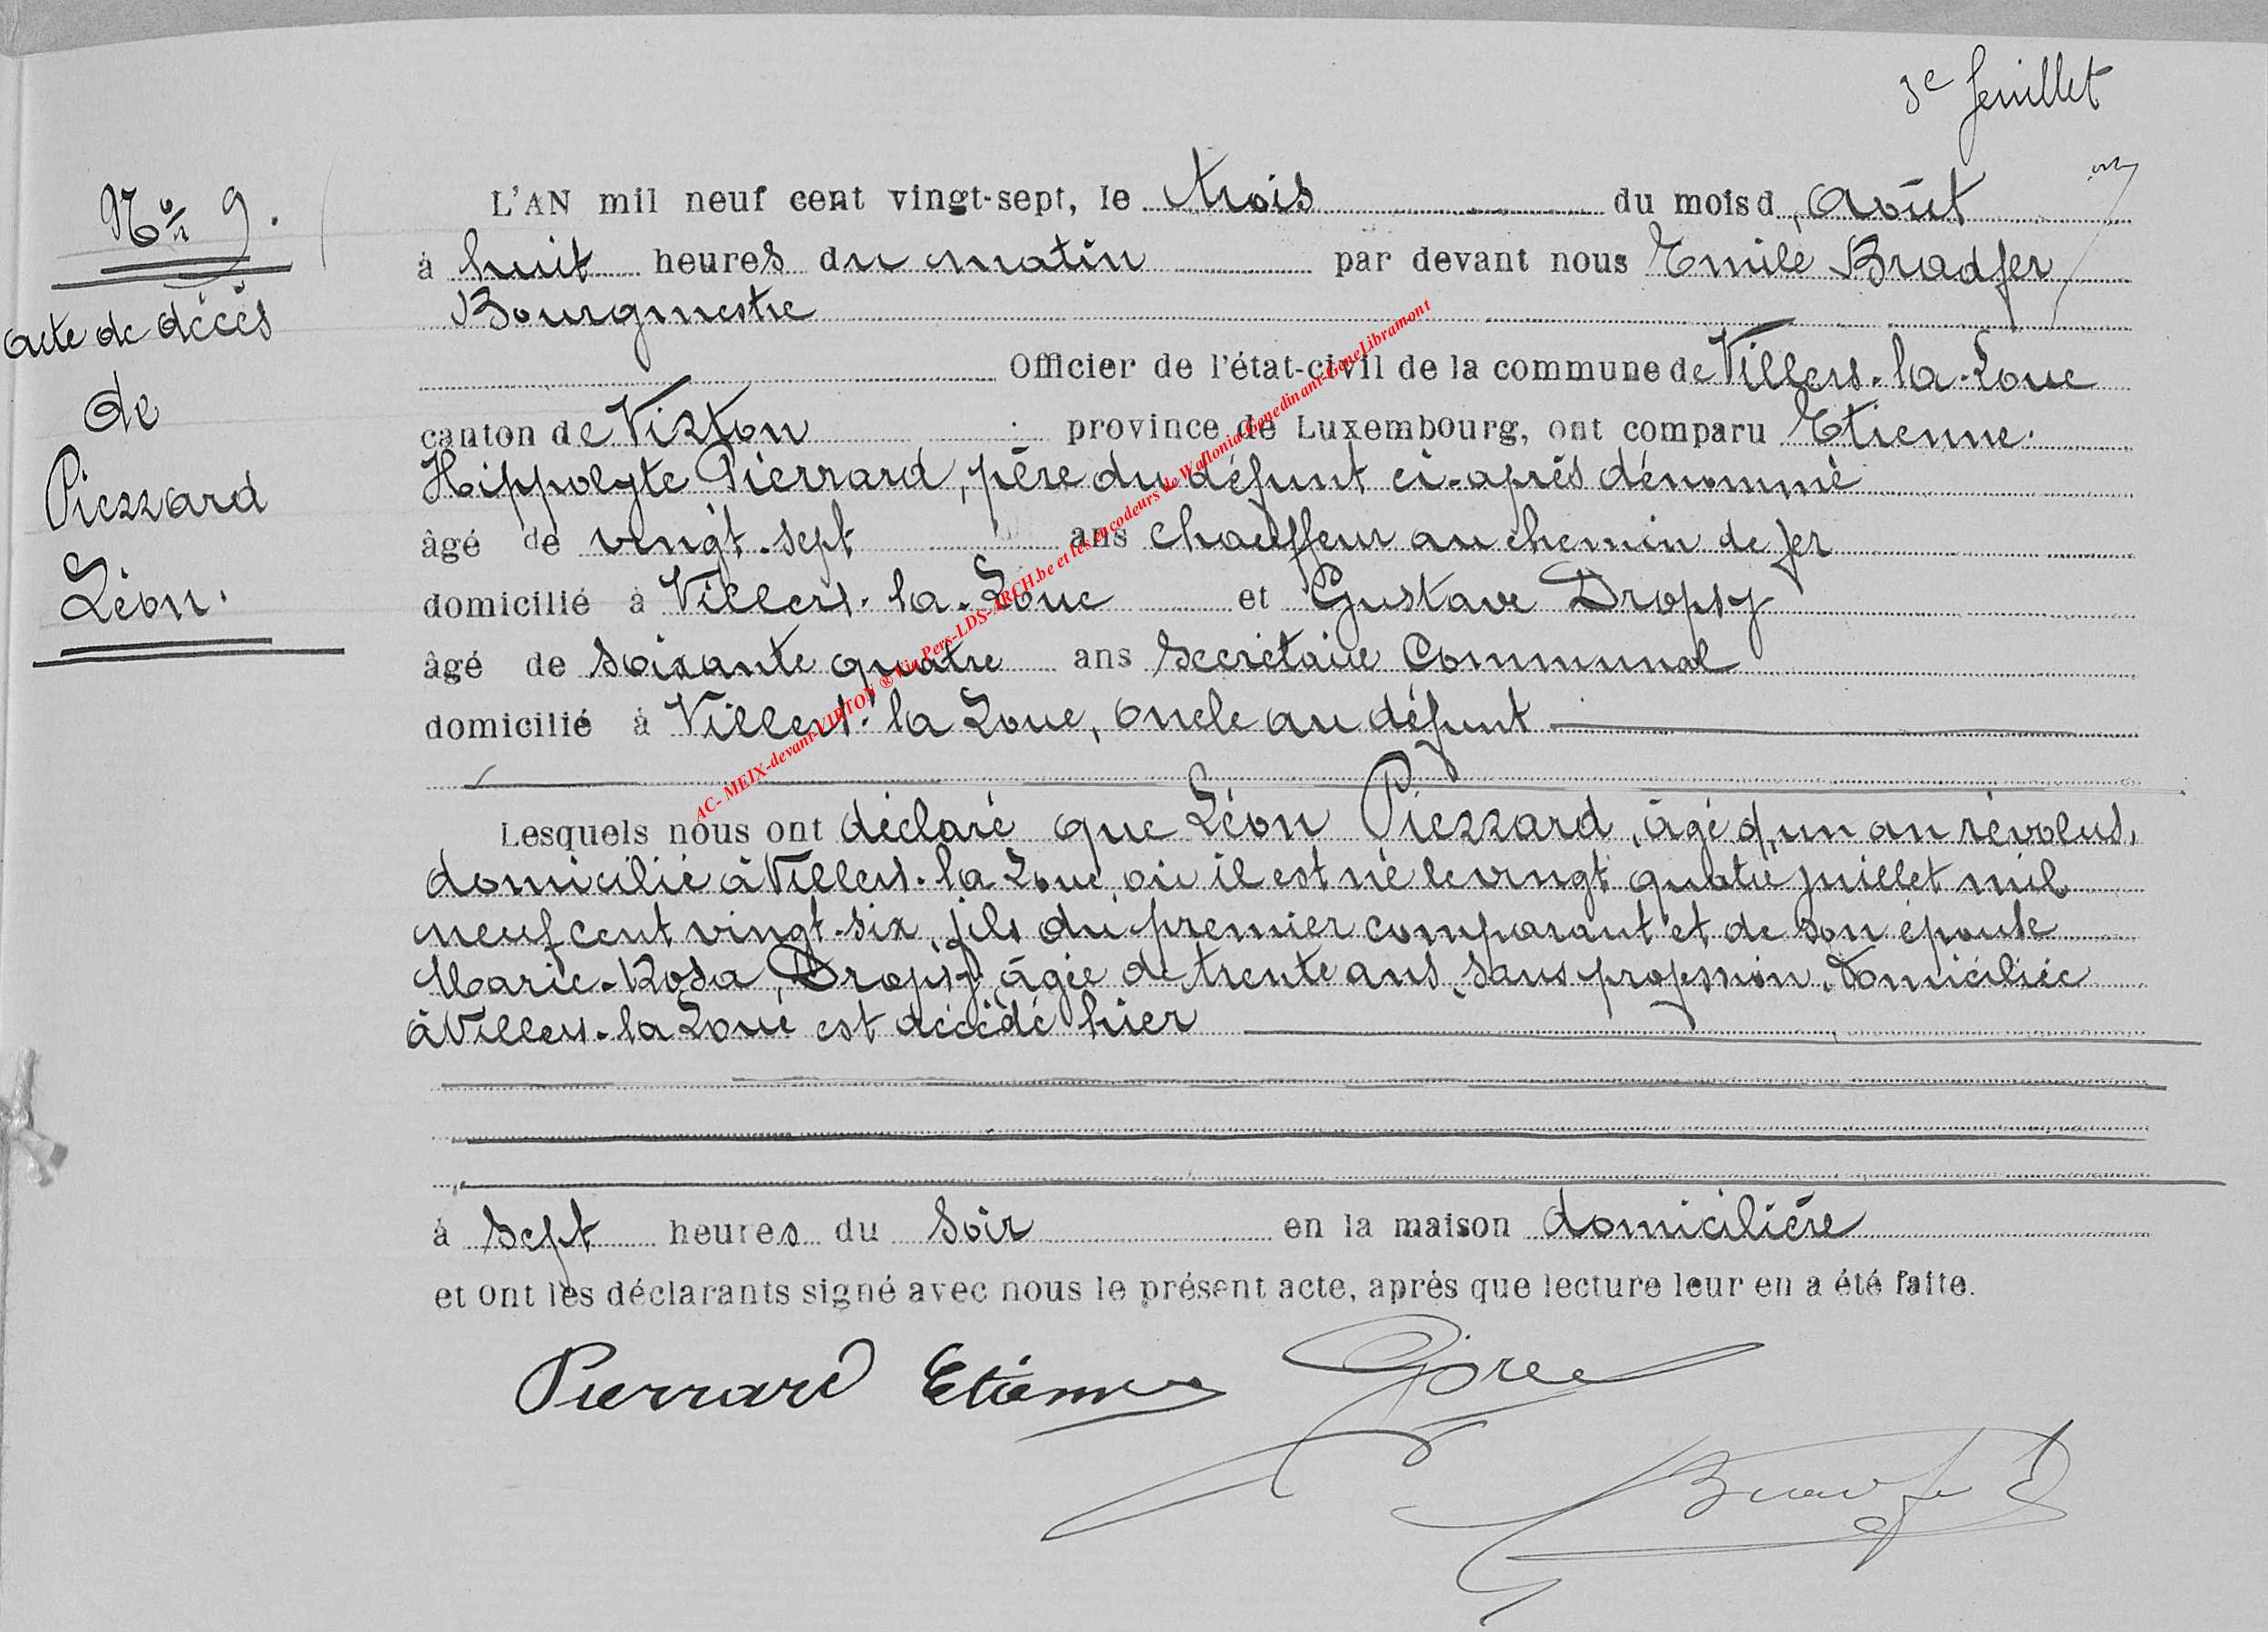 3e feuillet
No 9.
acte de décès
de
Pierrard
Léon.
L'AN mil neuf cent vingt-sept, le trois du mois d'Août
à huit heures du matin par devant nous Emile Bradfer
Bourgmestre
Officier de l'état-civil de la commune de Villers-la-Loue
canton de Virton province de Luxembourg, ont comparu Etienne
Hippolyte Pierrard, père du défunt ci-après dénommé
âgé de vingt-sept ans chauffeur au chemin de fer
domicilié à Villers-la-Loue et Gustave Dropsy
âgé de soixante quatre ans secrétaire Communal
domicilié à Villers-la Loue, oncle au défunt
Lesquels nous ont déclaré que Léon Pierrard, âgé d'un an révolus,
domicilié à Villers-la Loue, où il est né le vingt quatre juillet mil
neuf cent vingt-six, fils du premier comparant et de son épouse
Marie-Rosa Dropsy âgée de trente ans, sans profession, domiciliée
à Villers-la Loue est décédé hier
à sept heures du soir en la maison domicilière
et ont les déclarants signé avec nous le présent acte, après que lecture leur en a été faite.
Pierrard Etienne
Bradfer
AC- MEIX-devant-VIRTON ® Via Pers-LDS-ARCH.be et les encodeurs de Wallonia-Genedinant-GeneLibramont